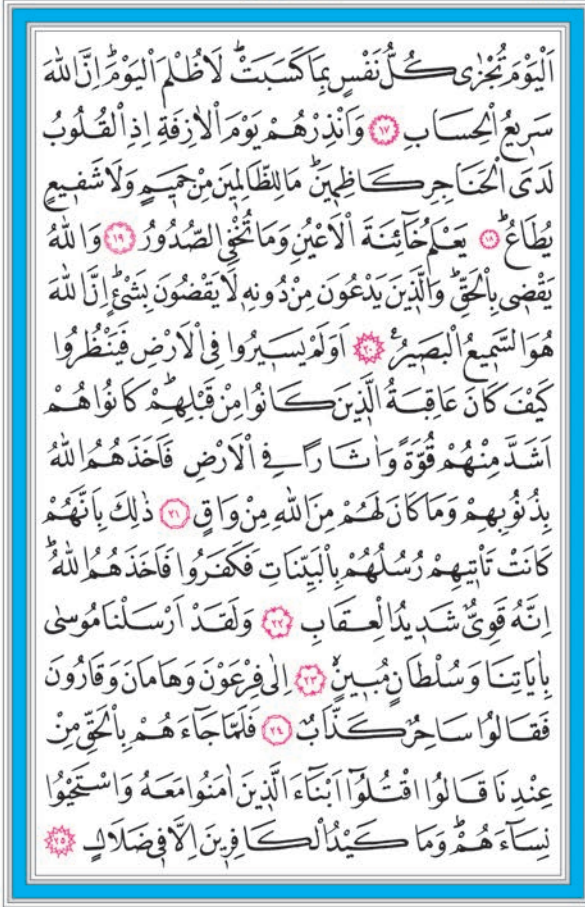 اَلْيَوْمَ تُجْزٰى كُلُّ نَفْسٍ بِمَا كَسَبَتْۜ لَا ظُلْمَ الْيَوْمَۜ اِنَّ اللّٰهَ
سَر۪يعُ الْحِسَابِ ﴿١٧﴾ وَاَنْذِرْهُمْ يَوْمَ الْاٰزِفَةِ اِذِ الْقُلُوبُ
لَدَى الْحَنَاجِرِ كَاظِم۪ينَۜ مَا لِلظَّالِم۪ينَ مِنْ حَم۪يمٍ وَلَا شَف۪يعٍ
يُطَاعُۜ ﴿١٨﴾ يَعْلَمُ خَٓائِنَةَ الْاَعْيُنِ وَمَا تُخْفِي الصُّدُورُ ﴿١٩﴾ وَاللّٰهُ
يَقْض۪ي بِالْحَقِّۜ وَالَّذ۪ينَ يَدْعُونَ مِنْ دُونِه۪ لَا يَقْضُونَ بِشَيْءٍۜ اِنَّ اللّٰهَ
هُوَ السَّم۪يعُ الْبَص۪يرُ۟ ﴿٢٠﴾ اَوَلَمْ يَس۪يرُوا فِي الْاَرْضِ فَيَنْظُرُوا
كَيْفَ كَانَ عَاقِبَةُ الَّذ۪ينَ كَانُوا مِنْ قَبْلِهِمْۜ كَانُوا هُمْ
اَشَدَّ مِنْهُمْ قُوَّةً وَاٰثَارًا فِي الْاَرْضِ فَاَخَذَهُمُ اللّٰهُ
بِذُنُوبِهِمْ وَمَا كَانَ لَهُمْ مِنَ اللّٰهِ مِنْ وَاقٍ ﴿٢١﴾ ذٰلِكَ بِاَنَّهُمْ
كَانَتْ تَأْت۪يهِمْ رُسُلُهُمْ بِالْبَيِّنَاتِ فَكَفَرُوا فَاَخَذَهُمُ اللّٰهُۜ
اِنَّهُ قَوِيٌّ شَد۪يدُ الْعِقَابِ ﴿٢٢﴾ وَلَقَدْ اَرْسَلْنَا مُوسٰى
بِاٰيَاتِنَا وَسُلْطَانٍ مُب۪ينٍۙ ﴿٢٣﴾ اِلٰى فِرْعَوْنَ وَهَامَانَ وَقَارُونَ
فَقَالُوا سَاحِرٌ كَذَّابٌ ﴿٢٤﴾ فَلَمَّا جَٓاءَهُمْ بِالْحَقِّ مِنْ
عِنْدِنَا قَالُوا اقْتُلُٓوا اَبْنَٓاءَ الَّذ۪ينَ اٰمَنُوا مَعَهُ وَاسْتَحْيُوا
نِسَٓاءَهُمْۜ وَمَا كَيْدُ الْكَافِر۪ينَ اِلَّا ف۪ي ضَلَالٍ ﴿٢٥﴾